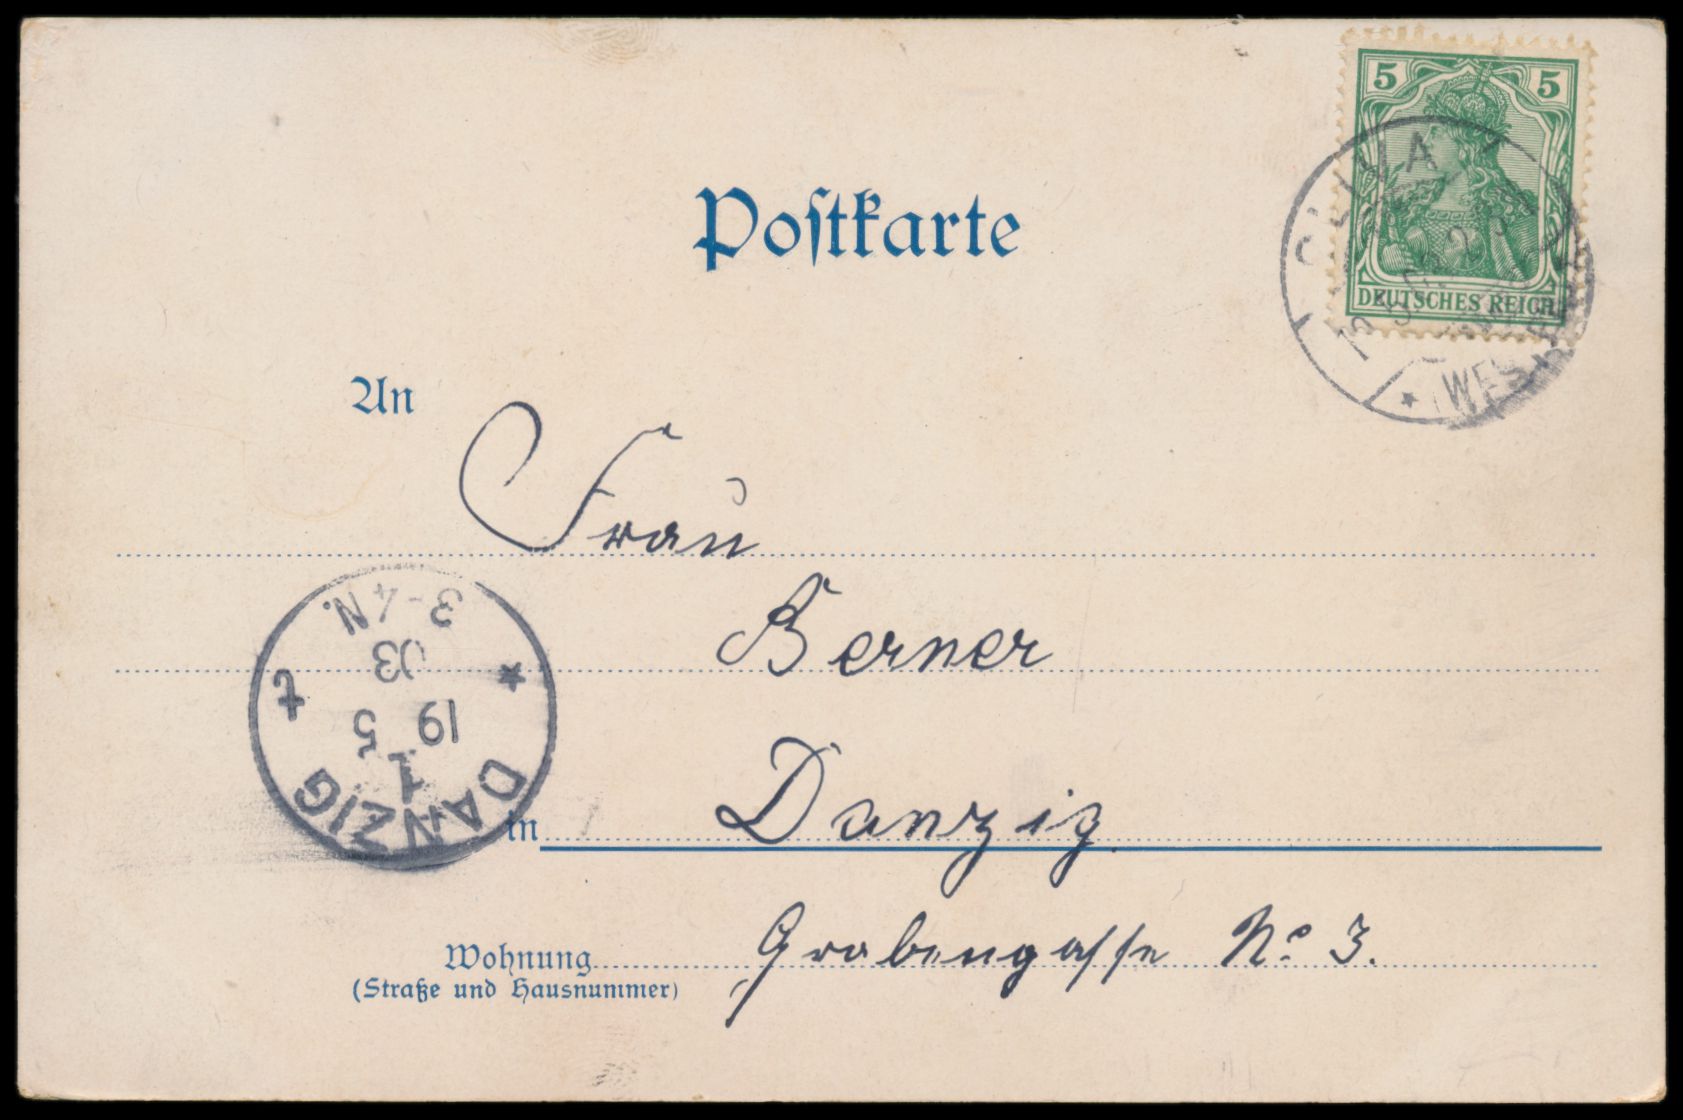 5 5
DEUTSCHES REICH
OLIVA
(WES
Postkarte
An
Frau
Berner
in Danzig
Grabengasse No 3.
Wohnung
(Straße und Hausnummer)
DANZIG
1
19 5
03
3-4 N.
* t